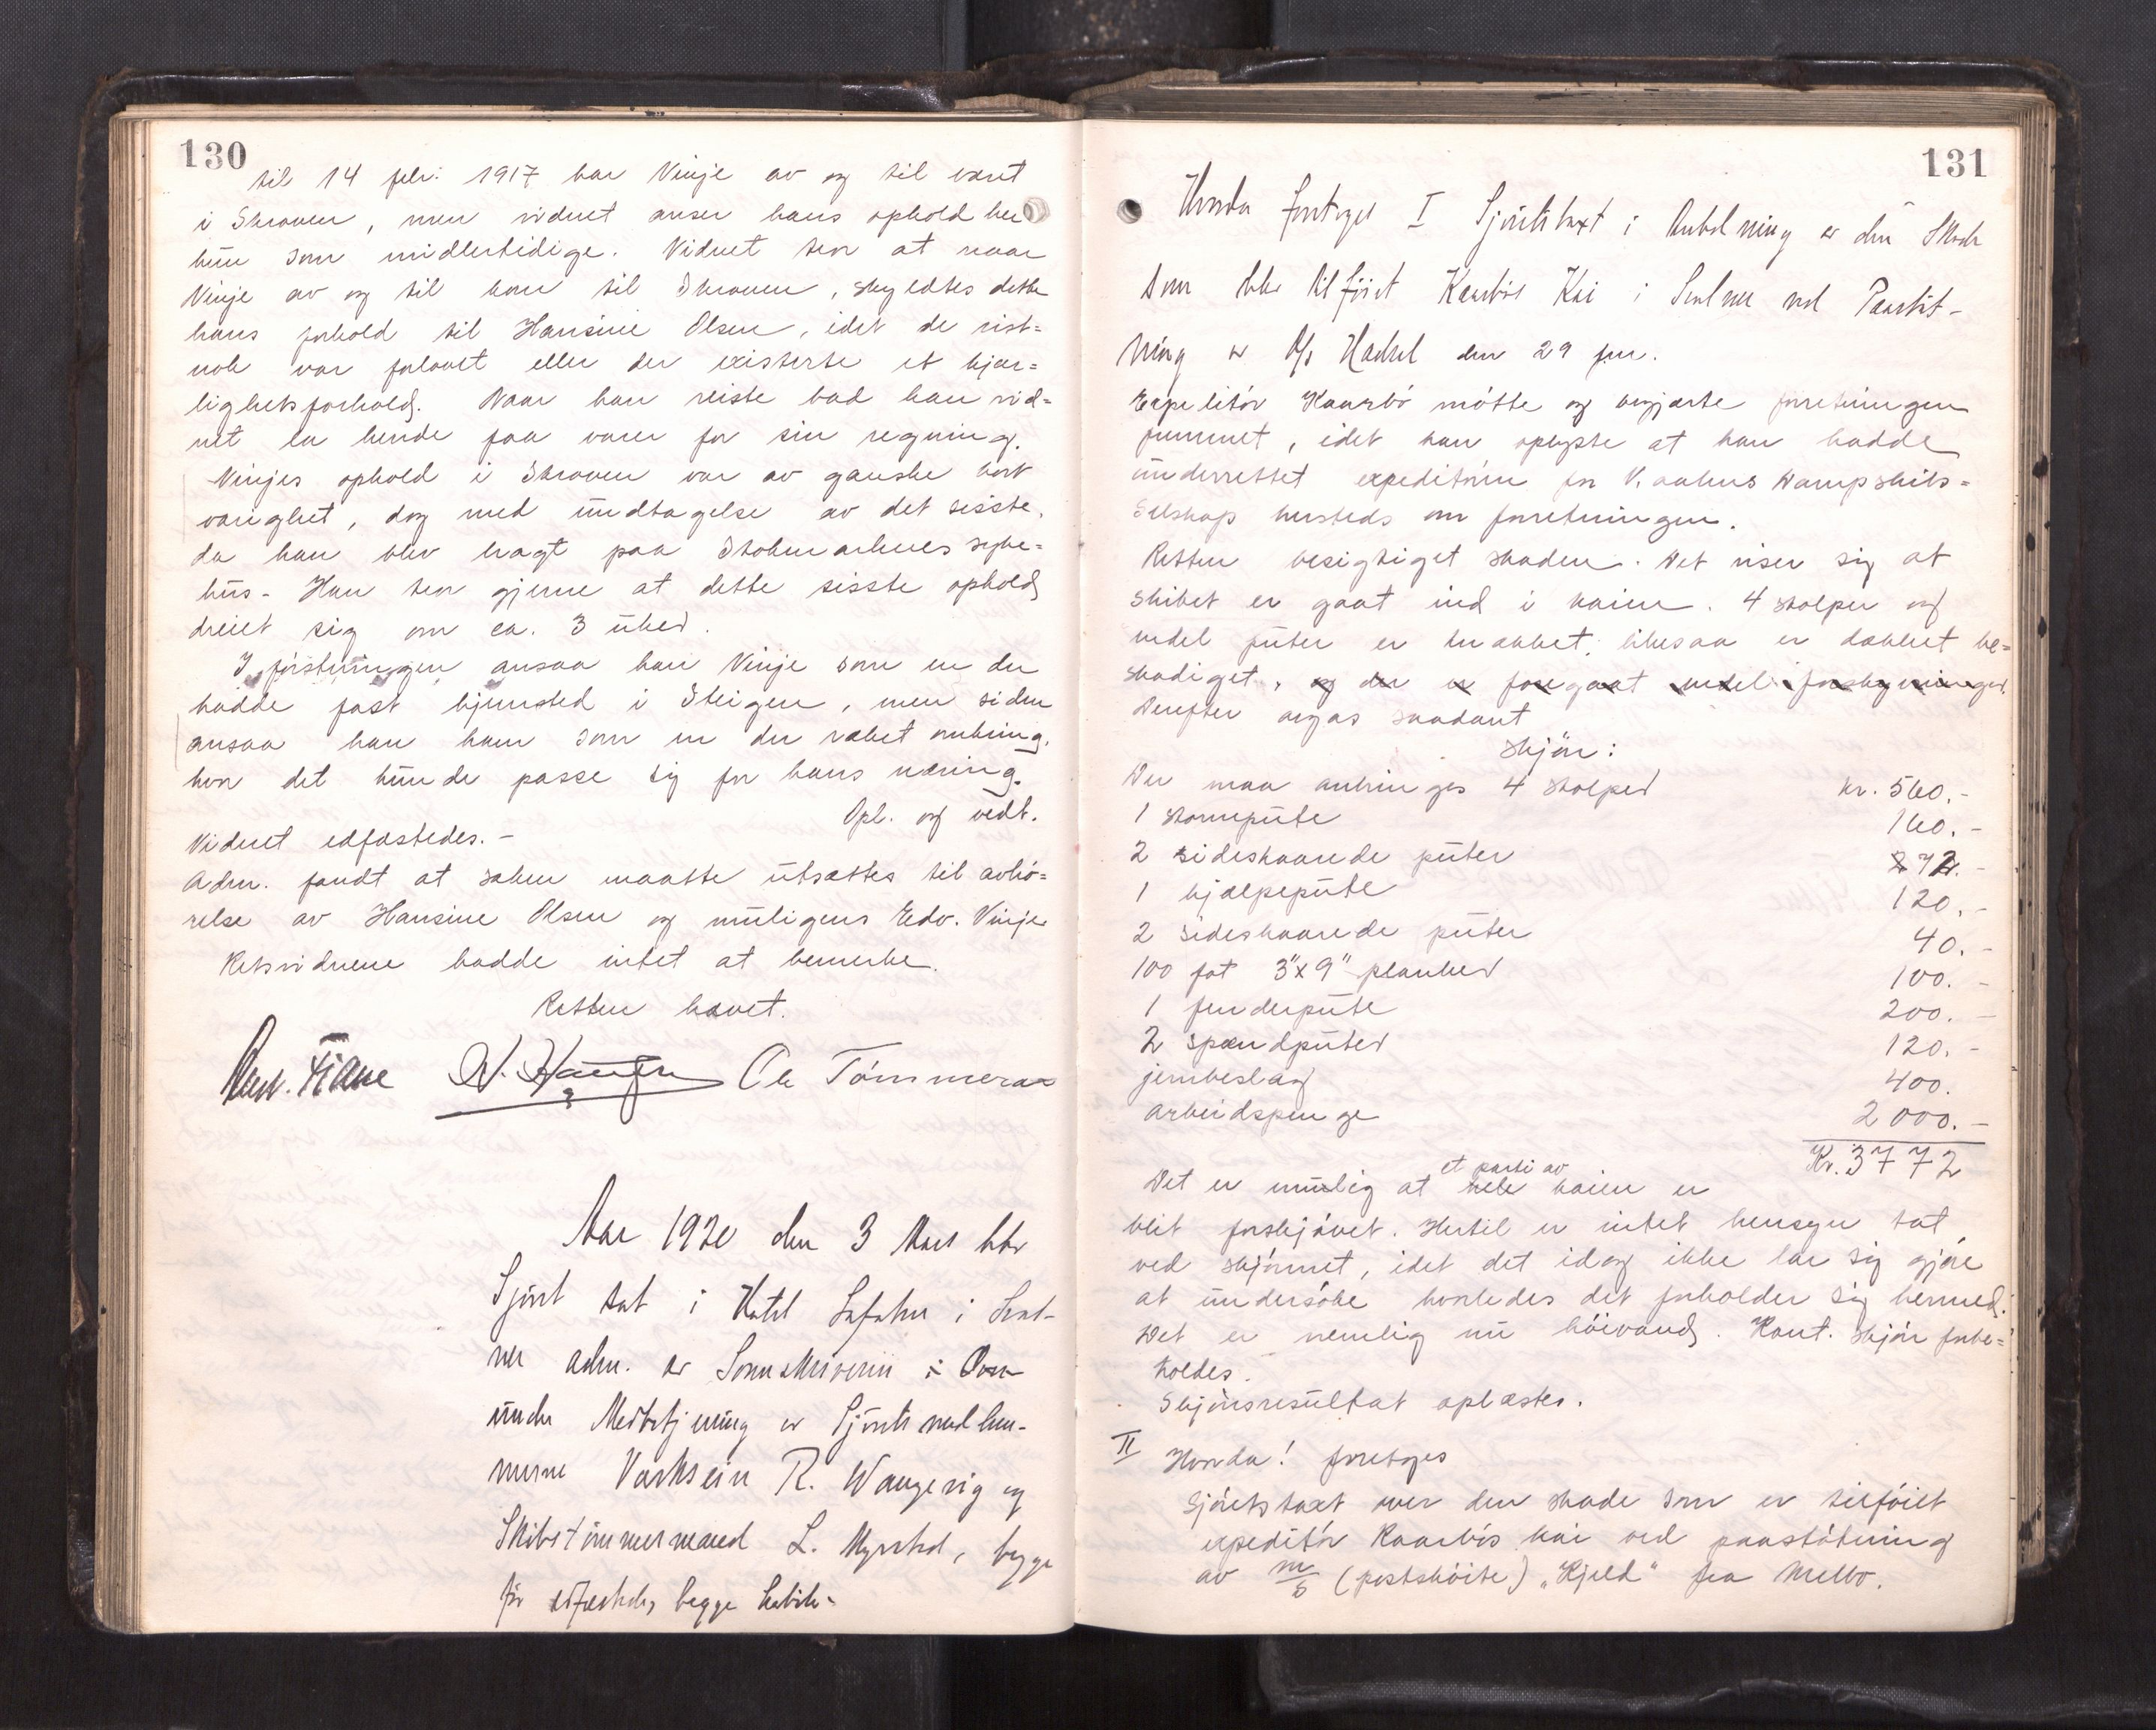 130
til 14 febr: 1917 har Vinje av og til været
i Skroven, men vidnet anser hans ophold her
kun som midlertidige. Vidnet tror at naar
Vinje av og til kom til Skroven, skyldtes dette
hans forhold til Hansine Olsen, idet de vist=
nok var forlovet eller der existerte et kjær=
lighetsforhold. Naar han reiste bad han vid=
net la hende faa varer for sin regning.
Vinjes ophold i Skroven var av ganske kort
varighet, dog med undtagelse av det sisste,
da han blev bragt paa Stokmarknes syke=
hus. Han tror gjerne at dette sisste ophold
dreiet sig om ca. 3 uker.
I førstningen ansaa han Vinje som en der
hadde fast hjemsted i Steigen, men siden
ansaa han ham som en der vaket omkring,
hvor det kunde passe sig for hans næring.
Opl. og vedt.
Vidnet edfæstedes. -
Adm. fandt at saken maatte utsættes til avhø=
relse av Hansine Olsen og muligens Edv. Vinje
Retsvidnene hadde intet at bemerke.
Retten hævet.
Fiane N. Hansen Ole Tømmeraas
Aar 1920 den 3 Mars blev
Sjøret sat i Hotel Lofoten i Svol-
vær adm. av Sorenskriveren i
under Medbetjening av Sjøretsmedlem-
merne Værkseier R. Wangsvig og
Skibstømmermand L. Myrstad, begge
før edfæstede, begge
131
Hvorda foretoges I Sjøretstaxt i Anledning av den Skade
som blev tilføiet Kaarbøs Kai i Svolvær ved Paastøt-
ning av D/s Hadsel den 29 jan.
Expeditør Kaarbø møtte og begjærte forretningen
fremmet, idet han oplyste at han hadde
underrettet expeditøren for V. aalens Dampskibs=
selskap hersteds om forretningen.
Retten besigtiget skaden. Det viser sig at
skibet er gaat ind i kaien. 4 stolper og
endel puter er knækket, likesaa er dækket be=
skadiget, og der er foregaat endel forskyvninger.
Derefter avgas saadant
skjøn:
Der maa anbringes 4 stolper kr. 560.-
1 stormpute 160.-
2 sideskaarede puter 72.-
1 hjælpepute 120.-
2 sideskaarede puter 40.-
100 fot 3"x9" planker 100.-
1 fenderpute 200.-
2 spændputer 120.-
jernbeslag 400.
arbeidspenge 2000.-
Kr. 3772
Det er mulig at hele et parti av kaien er
blit forskjøvet. Hertil er intet hensyn tat
ved skjønnet, idet det idag ikke lar sig gjøre
at undersøke hvorledes det forholder sig hermed.
Det er nemlig nu høivand. Kont. skjøn forbe=
holdes.
Skjønsresultat oplæstes.
II Hvorda! foretoges
Sjøretstaxt over den skade som er tilføiet
expeditør Kaarbøs kai ved paastøtning
av m/s (postskøite) "Kjeld" fra Melbo.